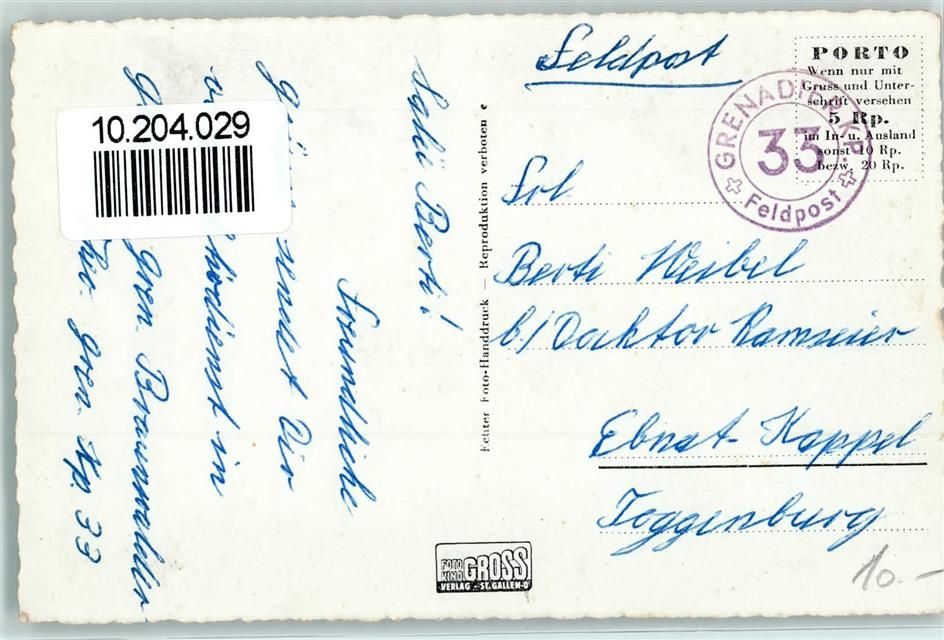 Salü Berti!
Freundliche
sendet Dir
in
Gren. Braunwalder
Gren. Kp. 33
Echter Foto-Handdruck — Reproduktion verboten
Feldpost
PORTO
Wenn nur mit
Gruss und Unter-
schrift versehen
5 Rp.
im In- u. Ausland
sonst 10 Rp.
bezw. 20 Rp.
GRENADIER KP.
33
Feldpost
Frl.
Berti Weibel
b/ Doktor Ramseier
Ebnat-Kappel
Toggenburg
10.-
10.204.029
FOTO
KINO
GROSS
VERLAG - ST. GALLEN-O